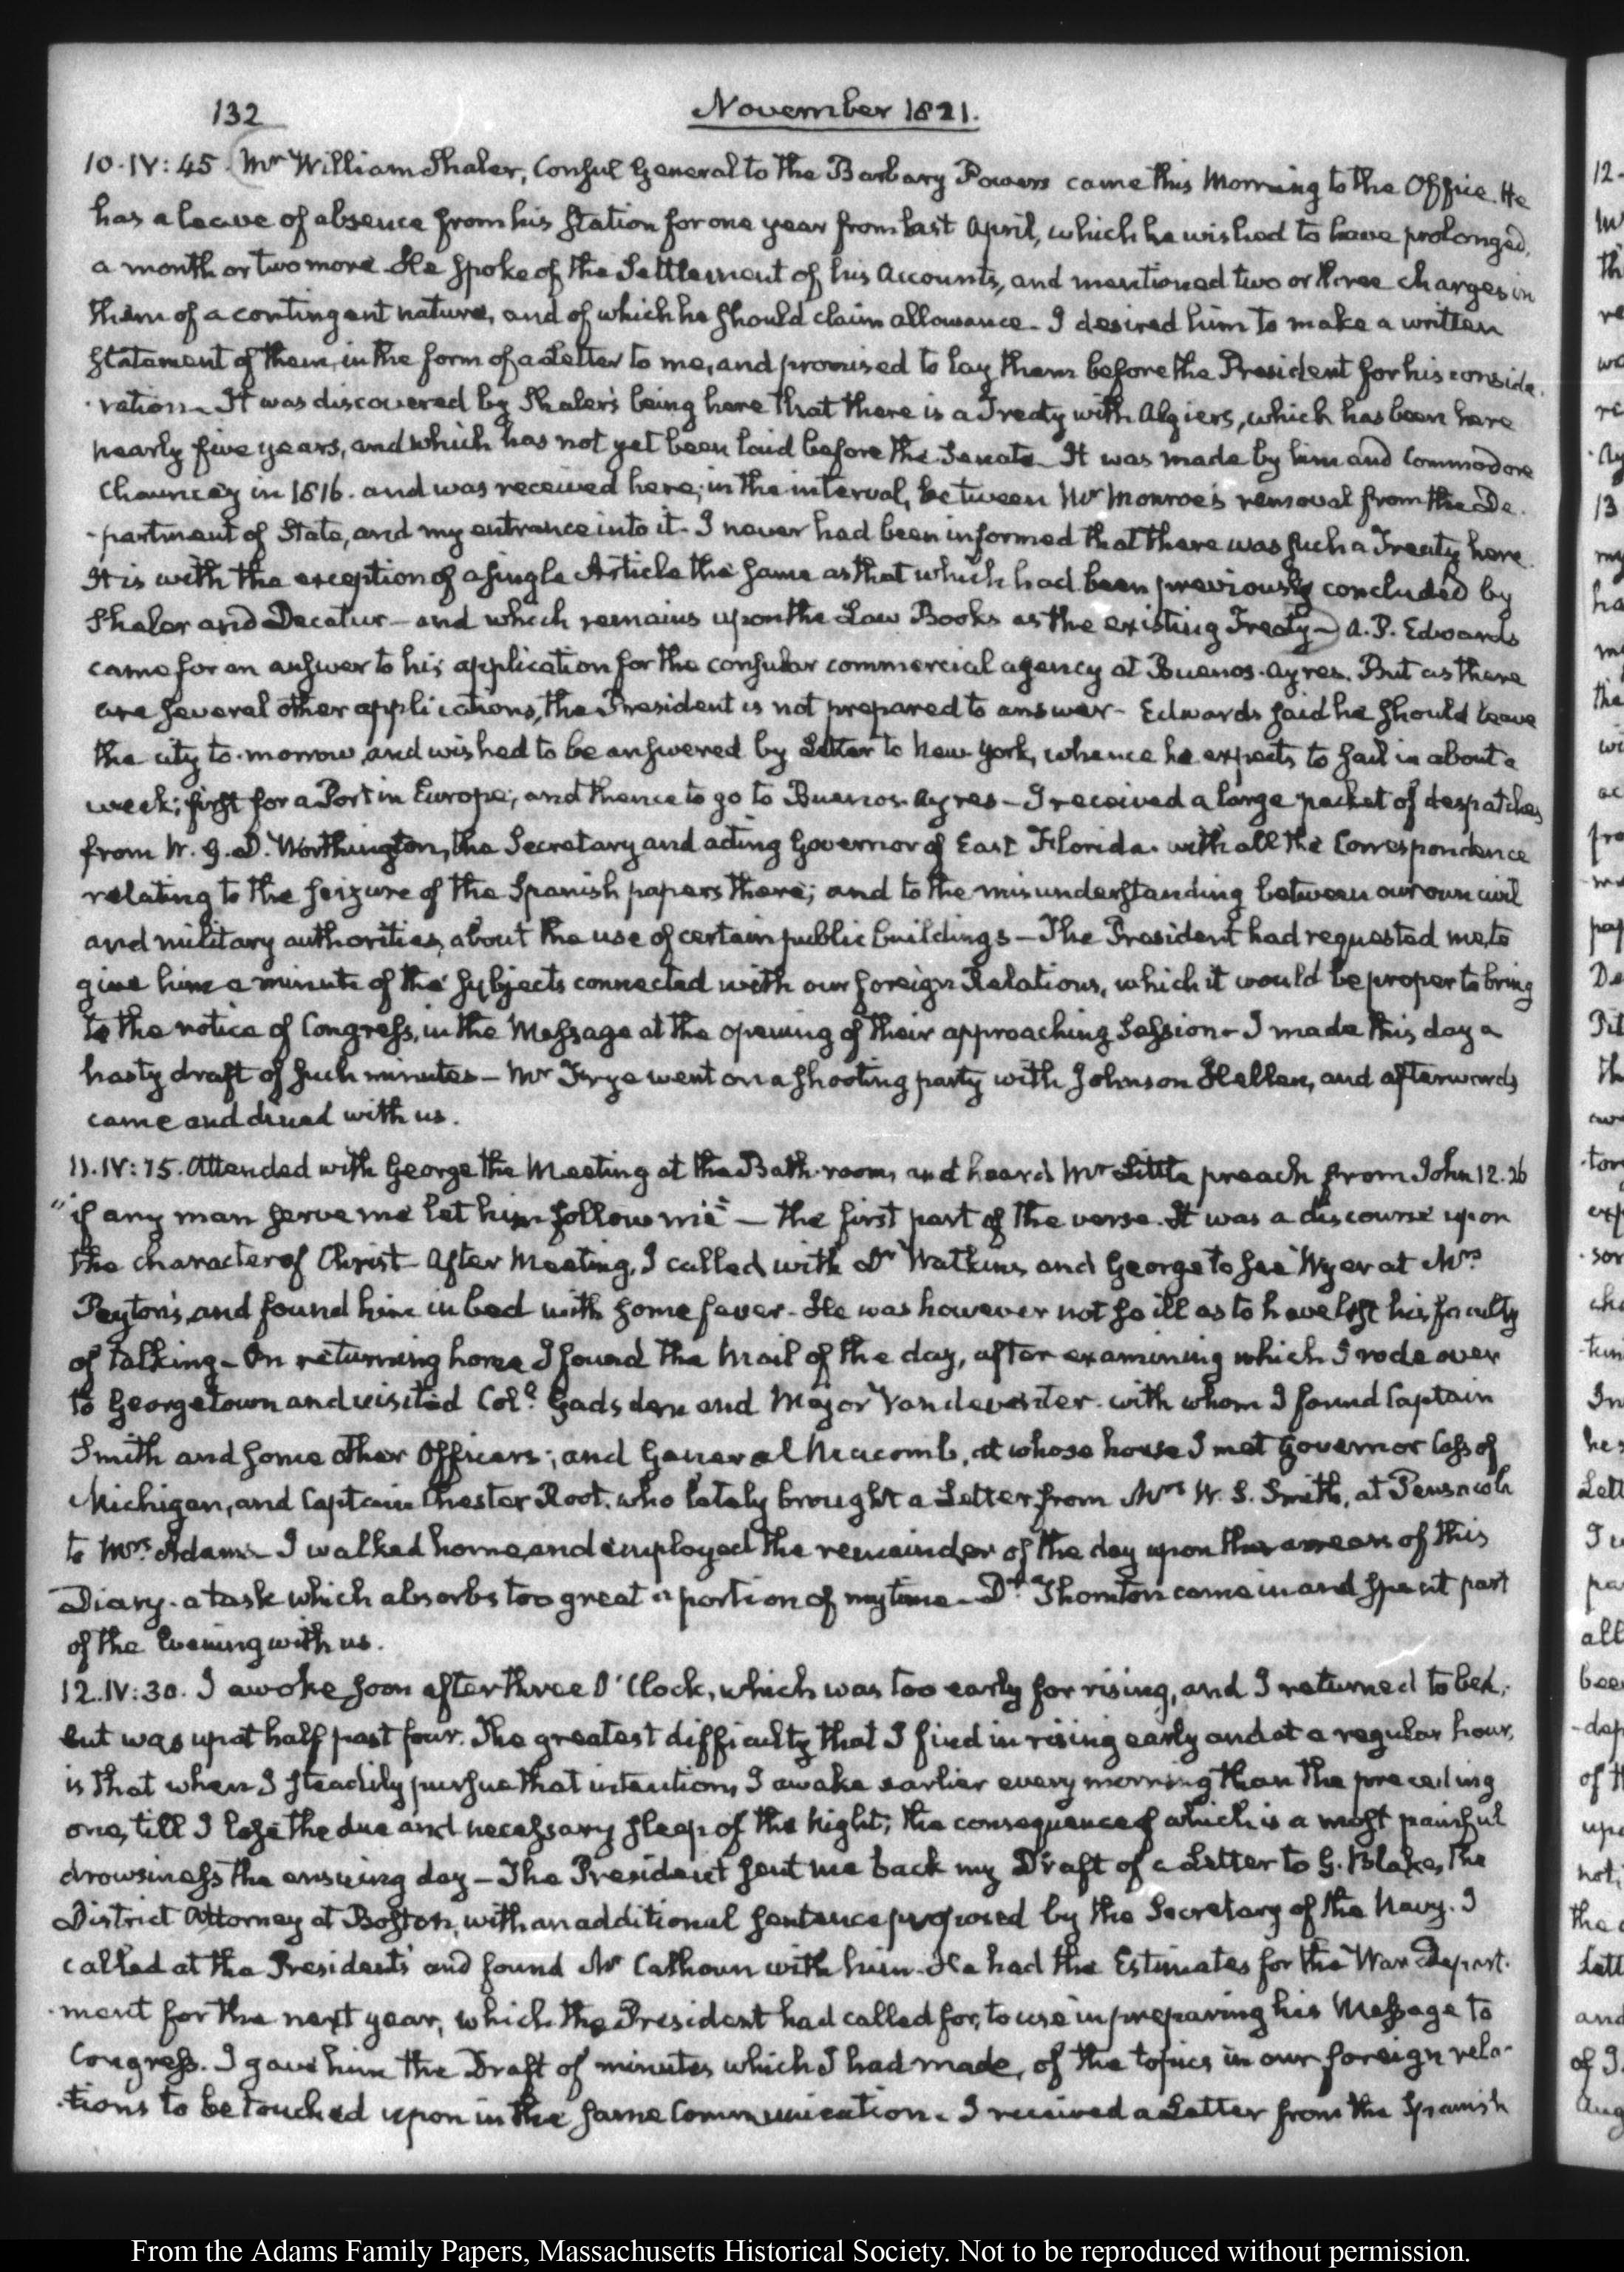 132
November 1821.
10. IV: 45. Mr William Shaler, Consul General to the Barbary Powers came this Morning to the Office. He
has a leave of absence from his station for one year from last April, which he wished to have prolonged,
a month or two more. He spoke of the Settlement of his Accounts, and mentioned two or three charges in
them of a contingent nature, and of which he should claim allowance. I desired him to make a written
statement of them, in the form of a Letter to me, and promised to lay them before the President for his conside
-ration. It was discovered by Shaler's being here that there is a Treaty with Algiers, which has been here
nearly five years, and which has not yet been laid before the Senate. It was made by him and Commodore
Chauncey in 1816. and was received here, in the interval, between Mr Monroe's removal from the De.
-partment of State, and my entrance into it. I never had been informed that there was such a Treaty here.
It is with the exception of a single Article the same as that which had been previously concluded by
Shaler and Decatur — and which remains upon the Law Books as the existing Treaty — A. P. Edwards
came for an answer to his application for the consular commercial agency at Buenos-Ayres. But as there
are several other applications, the President is not prepared to answer — Edwards said he should leave
the city to-morrow, and wished to be answered by Letter to New York, whence he expects to sail in about a
week; first for a Port in Europe; and thence to go to Buenos-Ayres — I received a large packet of despatches
from W. G. D. Worthington, the Secretary and acting Governor of East Florida. with all the Correspondence
relating to the seizure of the Spanish papers there; and to the misunderstanding between our own civil
and military authorities, about the use of certain public buildings — The President had requested me, to
give him a minute of the subjects connected with our foreign Relations, which it would be proper to bring
to the notice of Congress, in the Message at the opening of their approaching Session — I made this day a
hasty draft of such minutes — Mr Frye went on a shooting party with Johnson Hellen, and afterwards
came and dined with us.
11. IV: 15. Attended with George the Meeting at the Bath-room, and heard Mr Little preach from John 12. 26
"if any man serve me let him follow me" — the first part of the verse. It was a discourse upon
the character of Christ — After Meeting, I called with Dr Watkins and George to see Wyer at Mrs
Peyton's, and found him in bed with some fever — He was however not so ill as to have lost his faculty
of talking — On returning home I found the Mail of the day, after examining which I rode over
to Georgetown and visited Coll. Gadsden and Major Vandeventer. with whom I found Captain
Smith and some other Officers; and General Macomb, at whose house I met Governor Cass of
Michigan, and Captain Chester Root. who lately brought a Letter from Mrs W. S. Smith, at Pensacola
to Mrs Adams — I walked home, and employed the remainder of the day upon the arrears of this
Diary. a task which absorbs too great a portion of my time — Dr Thornton came in and spent part
of the Evening with us.
12. IV: 30. I awoke soon after three O'Clock, which was too early for rising, and I returned to bed,
but was up at half past four. The greatest difficulty that I find in rising early and at a regular hour,
is that when I steadily pursue that intention, I awake earlier every morning than the preceding
one, till I lose the due and necessary sleep of the Night; the consequence of which is a most painful
drowsiness the ensuing day — The President sent me back my Draft of a Letter to G. Blake, the
District Attorney at Boston, with an additional sentence proposed by the Secretary of the Navy. I
called at the President's and found Mr Calhoun with him. He had the Estimates for the War Depart.
-ment for the next year, which the President had called for, to use in preparing his Message to
Congress. I gave him the Draft of minutes which I had made, of the topics in our foreign rela-
-tions to be touched upon in the same Communication. I received a Letter from the Spanish
From the Adams Family Papers, Massachusetts Historical Society. Not to be reproduced without permission.